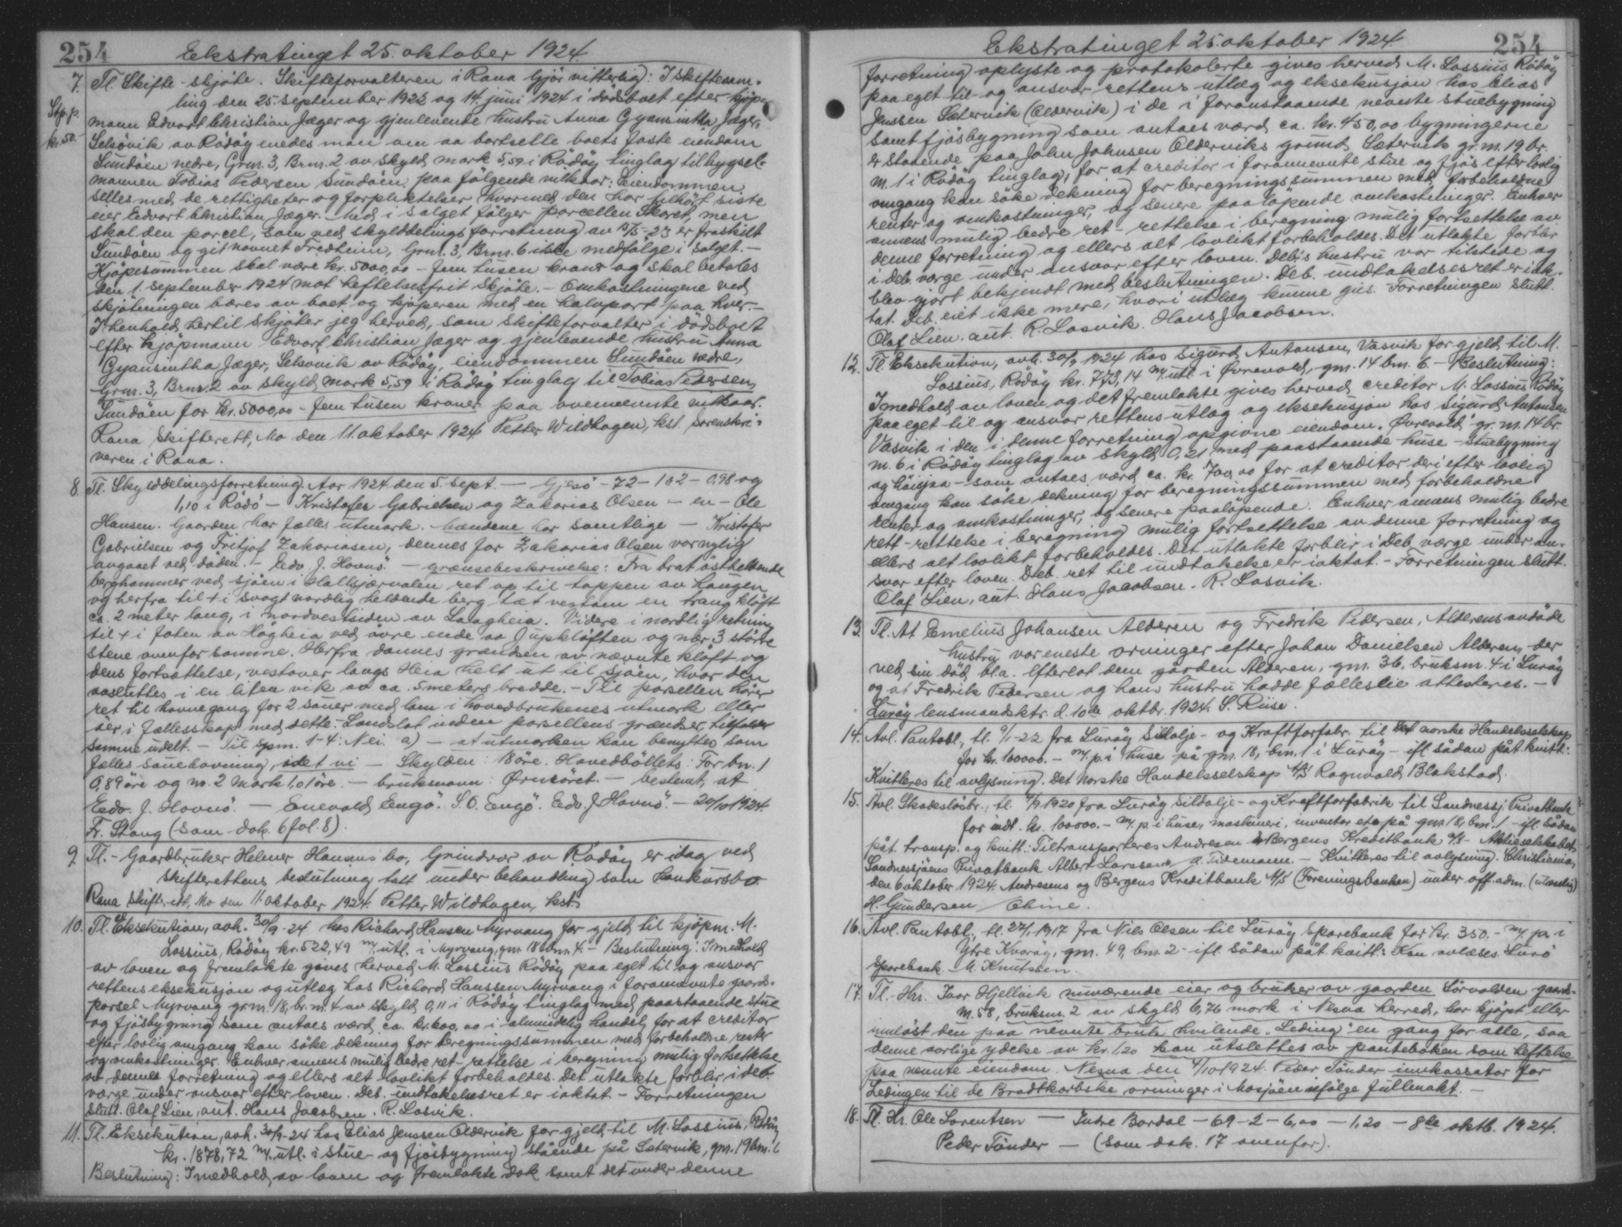 254 Ekstratinget 25 oktober 1924.
7. Tl. Skifte-skjøte. Skifteforvalteren i Rana Gjør vitterlig: I skiftesam-
Stp. p. ling den 25 september 1923 og 14 juni 1924 i dødsboet efter kjøp-
kr. 50. mann Edvart Christian Jæger og gjenlevende hustru Anna Gyansintha Jæger,
Selsövik av Rödöy enedes man om aa bortselle boets faste eiendom
Sundöen nedre, Grnr. 3, Brnr. 2 av skyld mark 5,59 i Rödöy tinglag til bygsel-
mannen Tobias Pedersen Sundöen paa følgende vilkaar: Eiendommen
selles med de rettigheter og forpliktelser hvormed den har tilhört siste
eier Edvart Christian Jæger. Med i salget følger porcellen Skoret, men
skal den parcel, som ved skylddelingsforretning av er fraskilt
Sundöen og git navnet Fredheim, Grnr. 3, Brnr. 6 ikke medfølge i salget. —
Kjöpesummen skal være kr. 5000,00 – fem tusen kroner og skal betales
den 1. september 1924 mot heftelsesfrit skjöte. – Omkostningene ved
skjötningen bæres av boet og kjøperen med en halvpart paa hver. —
I henhold hertil skjöter jeg herved, som skifteforvalter i dödsboet
efter kjöpmann Edvart Christian Jæger og gjenlevende hustru Anna
Gyansintha Jæger, Selsövik av Rödöy, eiendommen Sundöen nedre,
Grnr. 3, Brnr. 2 av skyld mark 5,59 i Rödöy tinglag til Tobias Pedersen
Sundöen for kr. 5000,00 – fem tusen kroner paa ovennevnte vilkaar.
Rana Skifterett, Mo den 11. oktober 1924 Petter Wildhagen, kst. sorenskri-
veren i Rana.
8. Tl. Skylddelingsforretning Aar 1924 den 5. sept. — Gjesö – 72 – 1 o 2 – 0,98 og
1,10 i Rödö – Kristofer Gabrielsen og Zakarias Olsen – en – Ole
Hansen. Gaarden har fælles utmark. Mændene har samtlige — Kristofer
Gabrielsen og Fritjof Zakariasen, dennes far Zakarias Olsen var nylig
avgaaet ved döden. – Edv. J. Hovnö. — grænsebeskrivelse: Fra brat østheldende
berghammer ved sjöen i Hallkjærvalen ret op til toppen av Haugen
og herfra til + i svagt nordlig heldende berg tæt vestom en trang klöft
ca. 2 meter lang, i nordvestsiden av Laagheia. Videre i nordlig retning
til + i foten av Högheia ved övre ende av Djupklöften og nær 3 större
stene ovenfor samme. Herfra dannes grænsen av nævnte klöft og
dens fortsættelse, vestover langs Heia helt ut til sjöen, hvor den
avsluttes i en liten vik av ca. 5 meters bredde. – Til parsellen hörer
ret til havnegang for 2 sauer med lam i hovedbrukenes utmark eller
öer i fællesskap med dette. Landslot inden parsellens grænser tilfalder
samme udelt. – Til spm. 1-4: Nei a) – at utmarken kan benyttes som
fælles sauehavning, idet vi — Skylden: 18 öre. Hovedböllets: For bn. 1
0,89 öre og nr. 2 mark 1,01 öre. — bruksnavn: Örneöret – bestemt, at
Edv. J. Hovnö. — Enevold Engö. S. O. Engö. Edv. J. Hovnö. – 20/10 1924.
Fr. Stang (Som dok. 6 fol. 8).
9. Tl. – Gaardbruker Helmer Hansens bo, Grindvor av Rödöy er idag ved
skifterettens beslutning tatt under behandling som konkursbo.
Rana skifterett, Mo den 11. oktober 1924 Petter Wildhagen, kst.
10. Tl. Eksekution, avh. 30/9-24 hos Richard Hansen Myrvang for gjeld til kjöpm. M.
Lossius, Rödöy kr. 522,49 m/ utl. i Myrvang, gnr. 18 bnr. 4. – Beslutning: I medhold
av loven og fremlakte gives herved M. Lossius Rödöy paa eget til og ansvar
rettens eksekusjon og utlæg hos Richard Hanssen Myrvang i forannævnte jord-
parsel Myrvang gr.nr. 18, br.nr. 4 av skyld 0,11 i Rödöy tinglag med paastaaende stue
og fjösbygning som antaes værd ca. kr. 600,00 i almindelig handel, for at creditor
efter lovlig omgang kan söke dekning for beregningssummen med forbeholdne renter
og omkostninger. Enhver annens mulig bedre ret – rettelse i beregning mulig fortsettelse
av denne forretning og ellers alt lovlikt forbeholdes. Det utlakte forblir i deb.
værge under ansvar efter loven. Deb. undtakelsesret er iaktat – Forretningen
slutt. Olaf Lien, aut. Hans Jacobsen. R. Losvik.
11. Tl. Eksekution, avh. 30/9-24 hos Elias Jenssen Oldervik for gjeld til M. Lossius, Rödöy
kr. 1878,72 m/ utl. i stue- og fjösbygning stående på Sætervik, gnr. 19 bnr. 1
Beslutning: I medhold av loven og fremlakte dok. samt det under denne
Ekstratinget 25 oktober 1924 254
forretning oplyste og protokolerte gives herved M. Lossius Rödöy
paa eget til og ansvar rettens utlæg og eksekusjon hos Elias
Jenssen Sætervik (Oldervik) i de i foranstaaende nevnte stuebygning
samt fjösbygning som antaes værd ca. kr. 450,00 bygningerne
er staaende paa John Johnsen Olderviks grund Sætervik gr.nr. 19 br.
nr. 1 i Rödöy tinglag, for at creditor i forannevnte stue og fjös efter lovlig
omgang kan söke dekning for beregningssummen med forbeholdne
renter og omkostninger, og senere paalöpende omkostninger. Enhver
annens mulig bedre ret – rettelse i beregning mulig fortsettelse av
denne forretning og ellers alt lovlikt forbeholdes. Det utlakte forblir
i deb. værge under ansvar efter loven. Deb's hustru var tilstede og
blev gjort bekjendt med beslutningen. Deb. undtakelsesret er iak-
tat. Deb. eiet ikke mere, hvori utlæg kunne gis. Forretningen slutt.
Olaf Lien. aut. R. Losvik. Hans Jacobsen.
12. Tl. Eksekution, avh. 30/9 1924 hos Sigurd Antonsen, Vasvik for gjeld til M.
Lossius, Rödöy kr. 773,14 m/ utl. i Övrevold, gnr. 14 bnr. 6 – Beslutning:
I medhold av loven og det fremlakte gives herved creditor M. Lossius Rödöy
paa eget til og ansvar rettens utlæg og eksekusjon hos Sigurd Antonsen
Vasvik i den i denne forretning opgivne eiendom. Övrevold gr.nr. 14 br.
nr. 6 i Rödöy tinglag av skyld 0,21 med paastaaende huse – stuebygning
og – som antaes værd ca. kr. 700,00 for at creditor deri efter lovlig
omgang kan söke dekning for beregningssummen med forbeholdne
renter og omkostninger, og senere paalöpende. Enhver annens mulig bedre
rett – rettelse i beregning mulig fortsettelse av denne forretning og
ellers alt lovlikt forbeholdes. Det utlakte forblir i Deb. værge under an-
svar efter loven. Deb. ret til undtakelse er iaktat. – Forretningen slutt.
Olaf Lien, aut. Hans Jacobsen. R. Losvik
13. Tl. At Emelius Johansen Alderen og Fredrik Pedersen, Alderens avdöde
hustru var eneste arvinger efter Johan Danielsen Alderen, der
ved sin död, bl.a. efterlot dem gården Alderen, gnr. 36, bruksnr. 4 i Luröy
og at Fredrik Pedersen og hans hustru hadde fælleseie attesteres. —
Luröy lensmandsktr. d. 10de oktbr. 1924. S. Riise.
14. Avl. Pantobl., tl. 9/1-22 fra Luröy Sildolje- og Kraftforfabr. til Det norske Handelsselskap
for kr. 10000. – m/ p. i huse på gnr. 18, bnr. 1 i Luröy – ifl. sådan påt. kvitt:
Kvitteres til avlysning. Det Norske Handelsselskap A/S Ragnvald Blakstad.
15. Avl. Skadeslösbr., tl. 1920 fra Luröy Sildolje- og Kraftforfabrik til Sandnessj. Privatbank
for indt. kr. 100000. – m/ p. i huse, maskineri, inventar etc. på gnr. 18, bnr. 1 – ifl. sådan
påt. transp. og kvitt: Tiltransporteres Andresens & Bergens Kreditbank A/S – Aktieselskabet
Sandnessjøens Privatbank Albert Larssen A. Tidemann. – Kvitteres til avlysning. Christiania,
den 6 oktober 1924. Andresens og Bergens Kreditbank A/S (Foreningsbanken) under off. adm. (utenrikes)
H. Gundersen
16. Avl. Pantobl., tl. 1917 fra Nils Olsen til Luröy Sparebank for kr. 350. – m/ p. i
Ytre Kvaröy, gnr. 49, bnr. 2 – ifl. sådan påt. kvitt: Kan avlæses. Lurö
Sparebank M. Knutssen.
17. Tl. Hr. Ivar Hjellvik nuværende eier og bruker av gaarden Sörvolden gaards-
nr. 58, bruksnr. 2 av skyld 6,76 mark i Nesna herred, har kjöpt eller
innlöst den paa nævnte bruk hvilende „Leding" en gang for alle, saa
denne aarlige ydelse av kr. 1,20 kan utslettes av panteboken som heftelse
paa nævnte eiendom. Nesna den 4/10 1924. Peder Tönder inkassator for
Ledingen til de Brodtkorbske arvinger i Mosjöen ifölge fullmakt. —
18. Tl. Hr. Ole Lorentsen — Indre Bardal – 69 – 2 – 6,00 – 1,20 – 8de oktb. 1924.
Peder Tönder — (Som dok. 17 ovenfor).